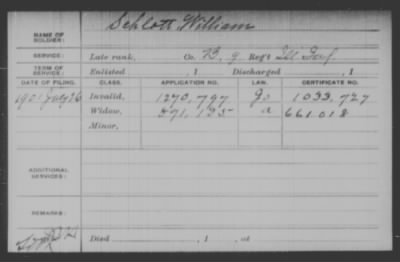 NAME OF SOLDIER: Schlott William
SERVICE: Late rank, Co. B, 9 Reg't Ill Inf.
TERM OF SERVICE: Enlisted , 1 Discharged , 1
DATE OF FILING. CLASS. APPLICATION NO. LAW. CERTIFICATE NO.
1901 July 26 Invalid, 1270,797 1033,727
Widow, 871,135 a 661018
Minor,
ADDITIONAL SERVICES:
REMARKS:
Died , 1 , at